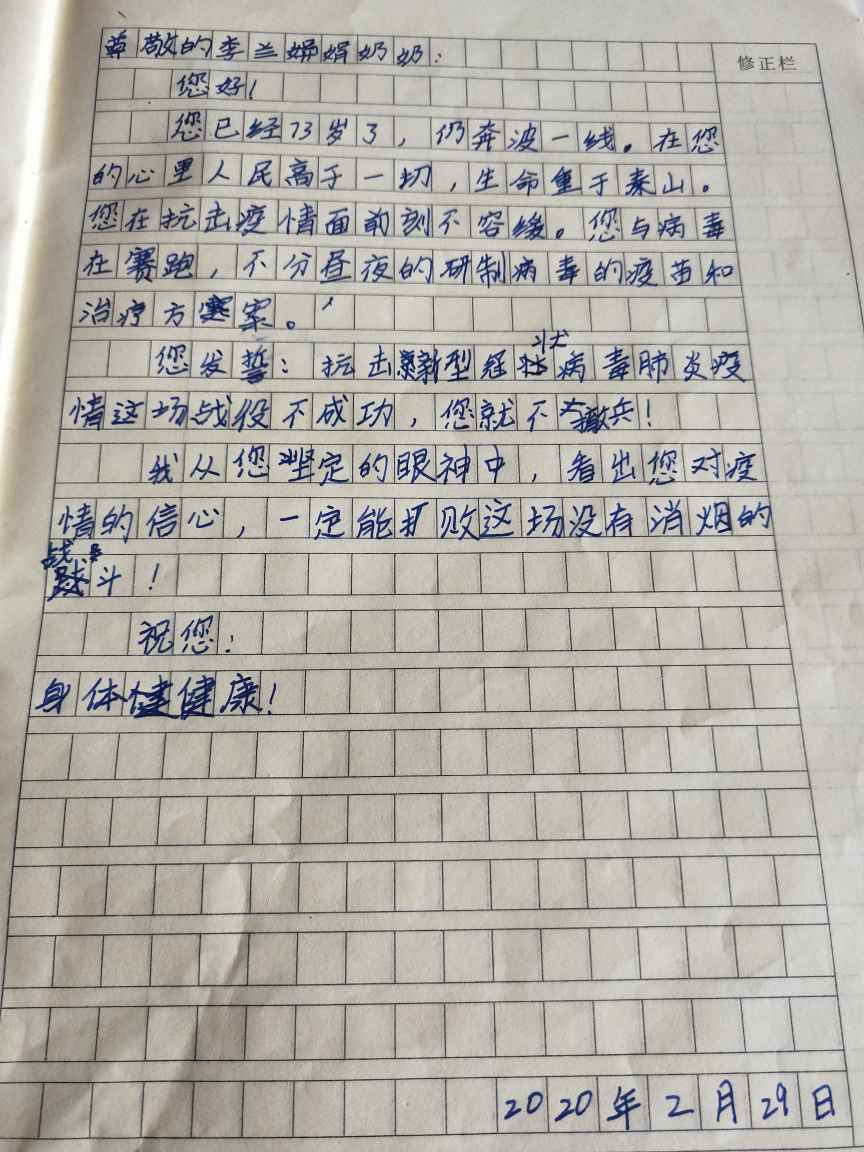 尊敬的李兰娟娟奶奶：
修正栏
您好！
您已经73岁了，仍奔波一线。在您
的心里人民高于一切，生命重于泰山。
您在抗击疫情面前刻不容缓。您与病毒
在赛跑，不分昼夜的研制病毒的疫苗和
治疗方案。
您发誓：抗击新型冠状病毒肺炎疫
情这场战役不成功，您就不撤兵！
我从您坚定的眼神中，看出您对疫
情的信心，一定能打败这场没有消烟的
战斗！
祝您：
身体健康！
2020年2月29日